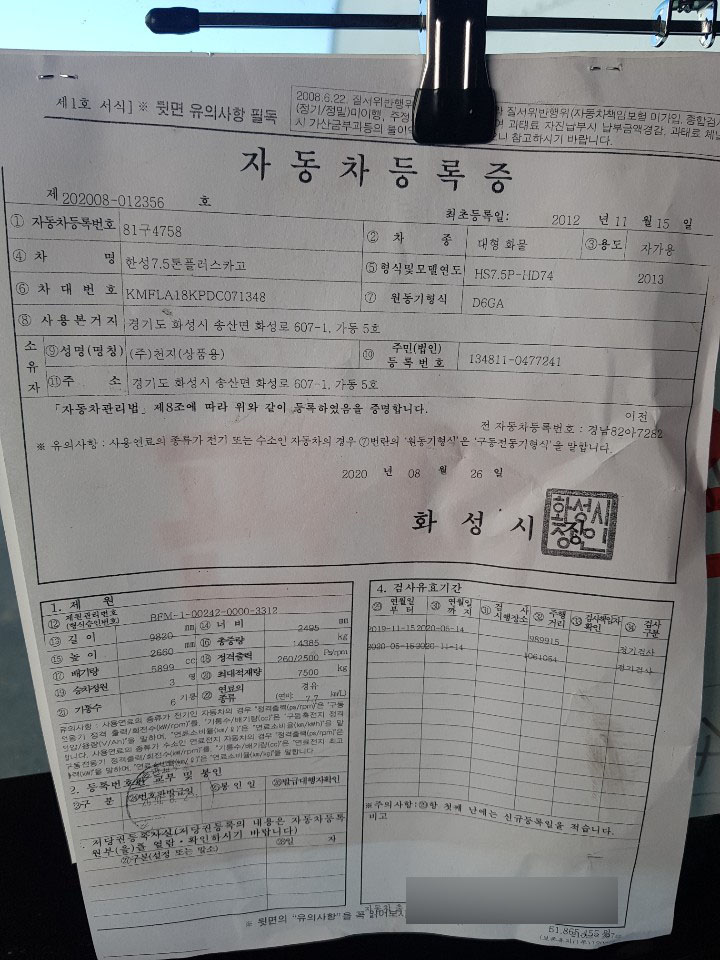 제1호 서식] ※ 뒷면 유의사항 필독
2008.6.22. 질서위반행위 한 질서위반행위(자동차책임보험 미가입, 종합검사
(정기/정밀)미이행, 주정 과태료 자진납부시 납부금액경감, 과태료 체납
시 가산금부과등의 불이익 니 참고하시기 바랍니다.
자동차등록증
제 202008-012356 호
최초등록일: 2012 년 11 월 15 일
① 자동차등록번호 81구4758 ② 차 종 대형 화물 ③용도 자가용
④ 차 명 한성7.5톤플러스카고 ⑤형식및모델연도 HS7.5P-HD74 2013
⑥ 차 대 번 호 KMFLA18KPDC071348 ⑦ 원동기형식 D6GA
⑧ 사 용 본 거 지 경기도 화성시 송산면 화성로 607-1, 가동 5호
소유자 ⑨성명(명칭) (주)천지(상품용) ⑩ 주민(법인)등록번호 134811-0477241
⑪주 소 경기도 화성시 송산면 화성로 607-1, 가동 5호
「자동차관리법」 제8조에 따라 위와 같이 등록하였음을 증명합니다.
이전
전 자동차등록번호 : 경남82아7282
※ 유의사항 : 사용연료의 종류가 전기 또는 수소인 자동차의 경우 ⑦번란의 '원동기형식'은 '구동전동기형식'을 말합니다.
2020 년 08 월 26 일
화 성 시 장
화성시장인
1. 제 원
⑫ 제원관리번호(형식승인번호) BFM-1-00242-0000-3312
⑬ 길이 9820 mm ⑭ 너비 2495 mm
⑮ 높이 2660 mm ⑯ 총중량 14385 kg
⑰ 배기량 5899 cc ⑱ 정격출력 260/2500 Ps/rpm
⑲ 승차정원 3 명 ⑳ 최대적재량 7500 kg
㉑ 기통수 6 기통 ㉒ 연료의 종류 경유 (연비 7.7 km/L)
유의사항 : 사용연료의 종류가 전기인 자동차의 경우 "정격출력(ps/rpm)"은 "구동
2. 등록번호판 교부 및 봉인
구 분 번호판발급일 봉인일 발급대행자확인
저당권등록사실(저당권등록의 내용은 자동차등록
원부(을)를 열람·확인하시기 바랍니다)
구분(설정 또는 말소) 일 자
4. 검사유효기간
연월일부터 연월일까지 검사시행장소 주행거리 검사책임자확인 검사구분
2019-11-15 2020-05-14 989915 정기검사
2020-05-15 2020-11-14 정기검사
※주의사항:㉙항 첫째 난에는 신규등록일을 적습니다.
비고
※ 뒷면의 "유의사항"을 꼭 읽어보시